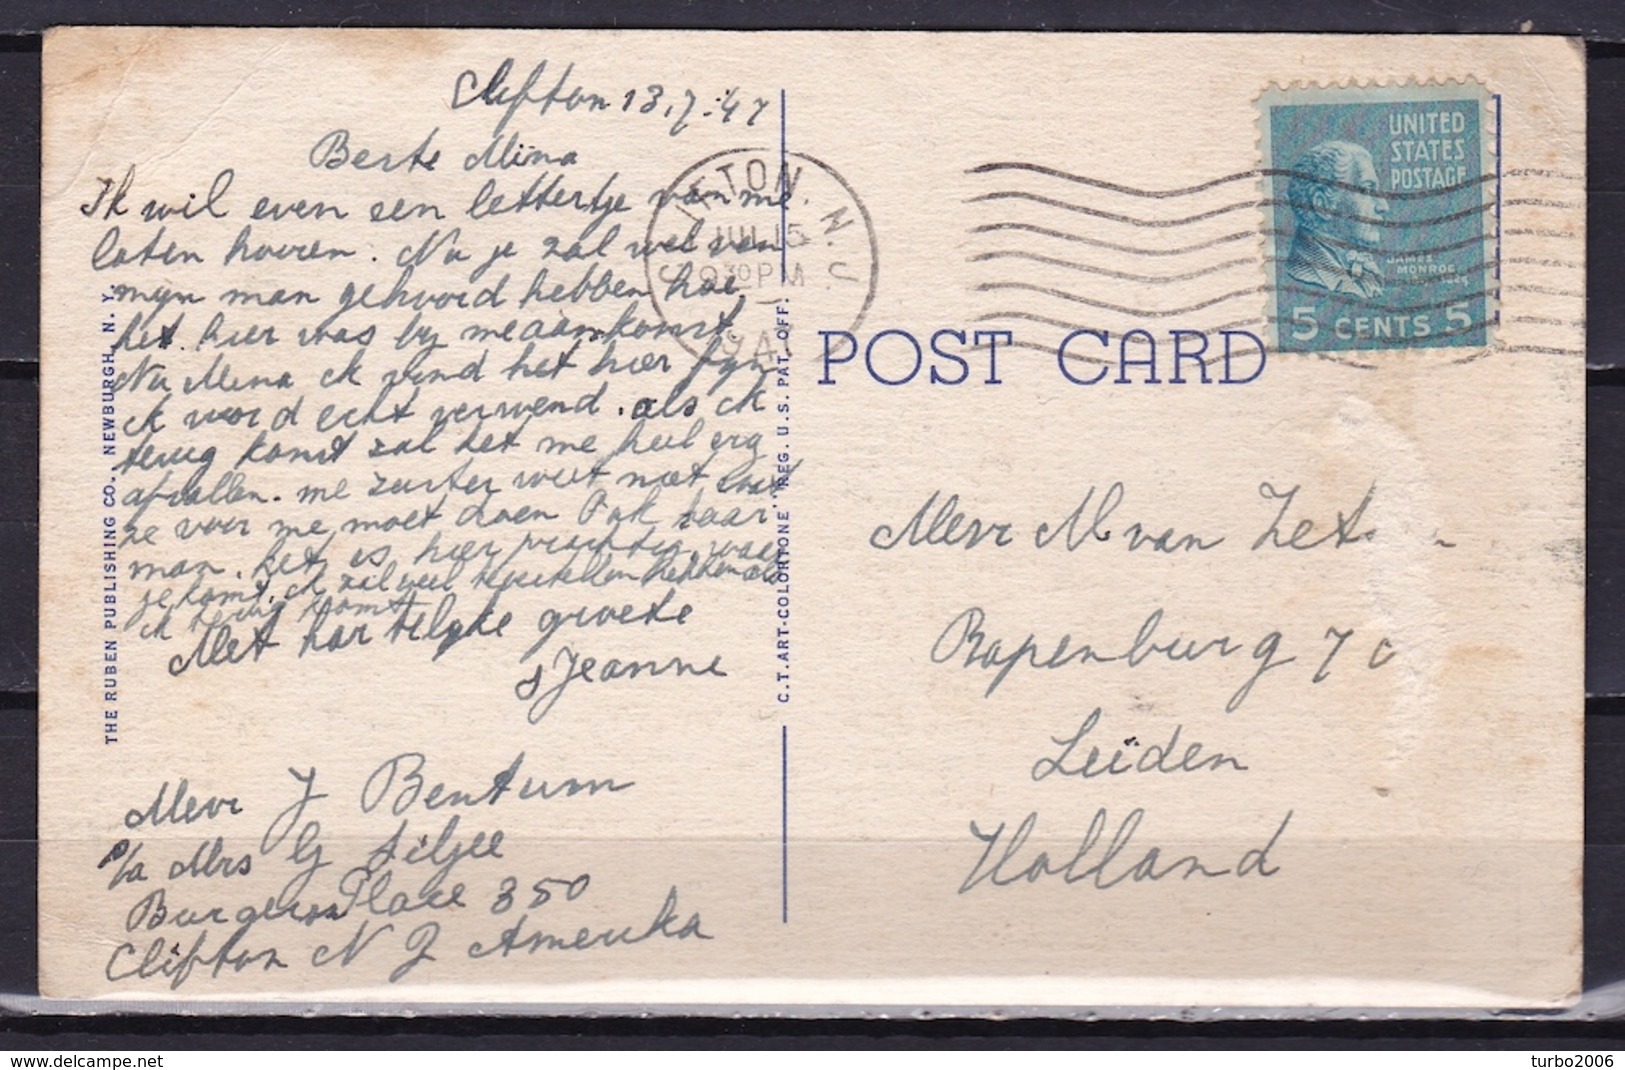 Clifton 13.7.47
Beste Mina
Ik wil even een lettertje van me.
laten hooren. Nu je zal wel van
mijn man gehoord hebben hoe
het hier was bij me aankomst
Nu Mina ik vind het hier fijn
ik word echt verwend. als ik
terug komt zal het me heel erg
afvallen. me zuster weet niet wat
ze voor me moet doen Ook haar
man. het is hier prachtig waar
je komt. ik zal veel te vertellen hebben als
ik terug komt
Met hartelijke groete
Jeanne
Mevr J Bentum
p/a Mrs G
Burgers Place 350
Clifton N J Amerika
THE RUBEN PUBLISHING CO., NEWBURGH, N. Y.
C.T. ART-COLORTONE" REG. U.S. PAT. OFF.
CLIFTON N.J.
JUL 15
9 30 PM
194
POST CARD
UNITED
STATES
POSTAGE
JAMES
MONROE
5 CENTS 5
Mevr M van Zet
Rapenburg 70
Leiden
Holland
turbo2006